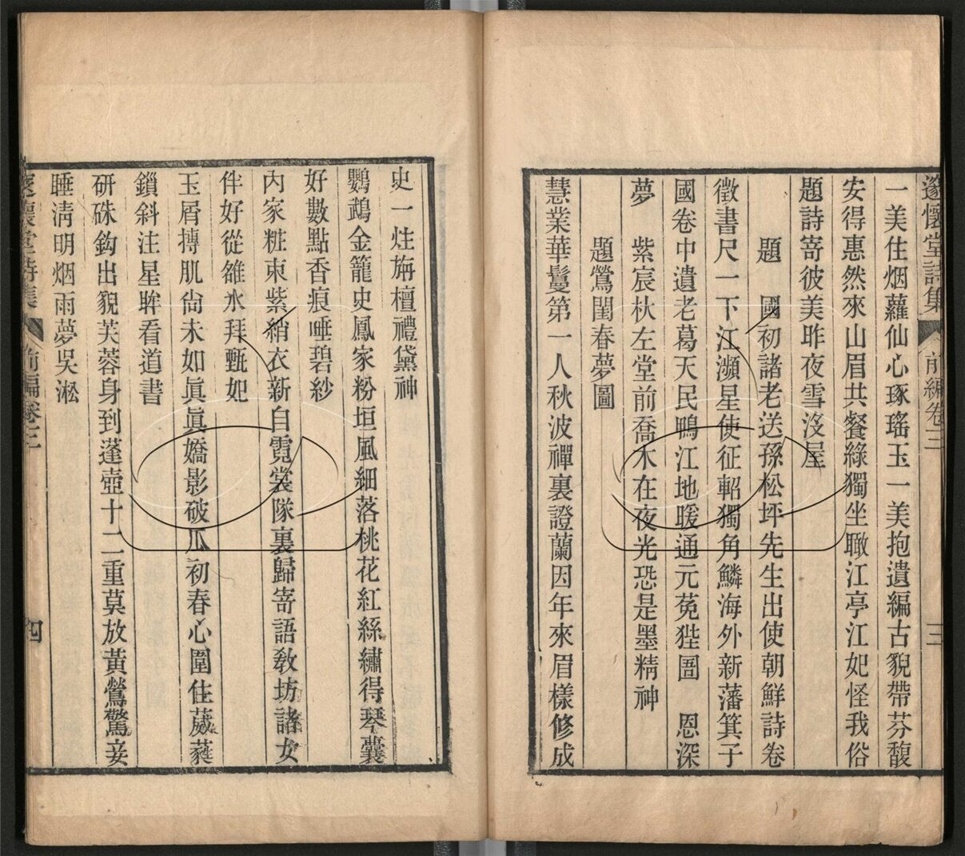 邃懷堂詩集 前編卷三 三
一美住烟蘿仙心琢瑤玉一美抱遺編古貎帶芬馥
安得惠然來山眉共餐綠獨坐瞰江亭江妃怪我俗
題詩寄彼美昨夜雪沒屋
題 國初諸老送孫松坪先生出使朝鮮詩卷
徵書尺一下江瀕星使征軺獨角鱗海外新藩箕子
國卷中遺老葛天民鴨江地暖通元菟狴圄 恩深
夢 紫宸秋左堂前喬木在夜光恐是墨精神
題鶯閨春夢圖
慧業華鬘第一人秋波禪裏證蘭因年來眉樣修成
史一炷旃檀禮黛神
鸚鵡金籠史鳳家粉垣風細落桃花紅絲繡得琴囊
好數點香痕唾碧紗
內家粧束紫綃衣新自霓裳隊裏歸寄語敎坊諸女
伴好從雒水拜甄妃
玉屑摶肌尙未如眞眞嬌影破瓜初春心圍住葳蕤
鎖斜注星眸看道書
硏硃鈎出貎芙蓉身到蓬壺十二重莫放黃鶯驚妾
睡淸明烟雨夢吳淞
邃懷堂詩集 前編卷三 四